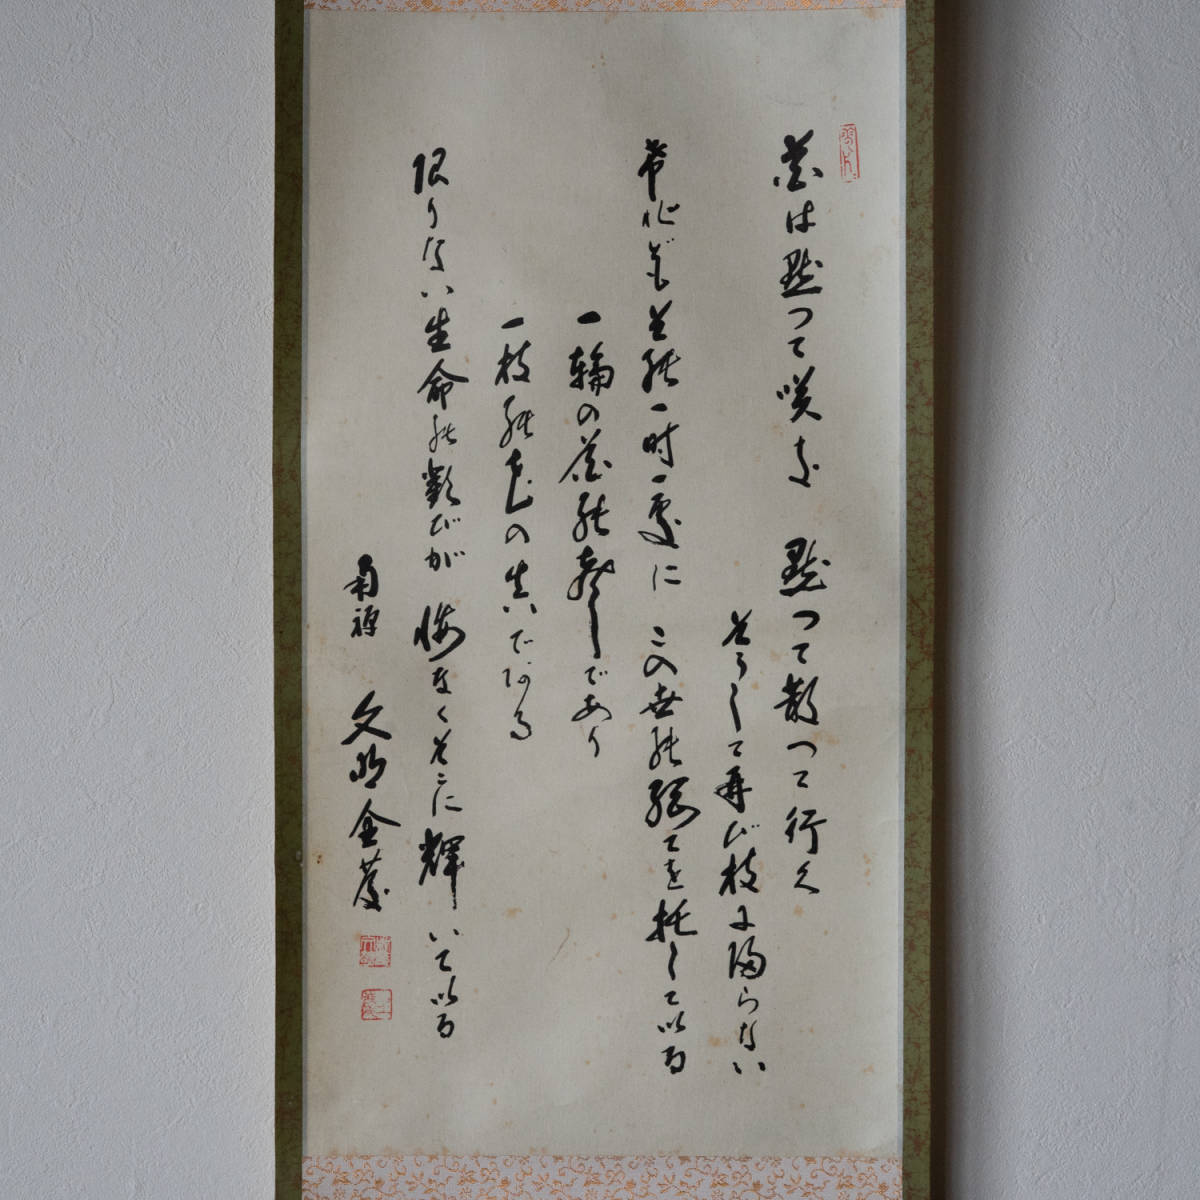 花は黙つて咲き 黙つて散つて行く
そうして再び枝に帰らない
けれどもその一時一処に この世の総てを托している
一輪の花の声であり
一枝の花の真である
限りない生命の歓びが 悔なくそこに輝いている
南禅 文明 全慶